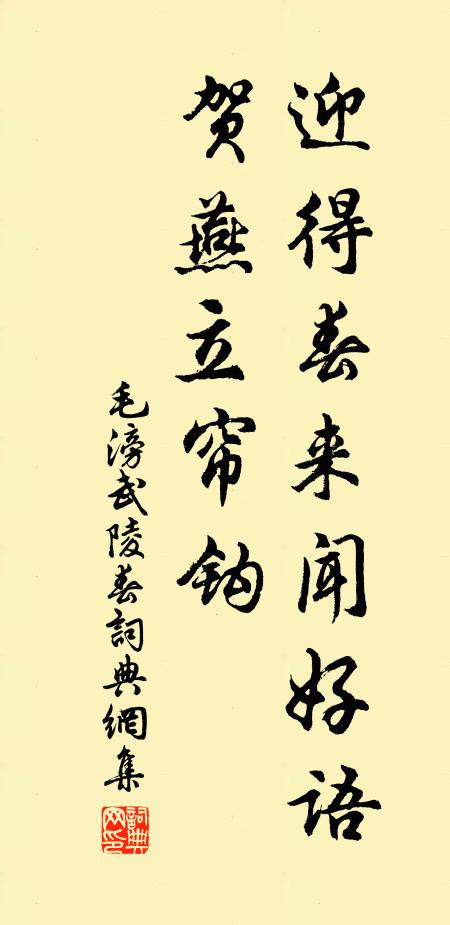 迎得春来闻好语
贺燕立帘钩
毛滂武陵春詞典網集
詞典网印